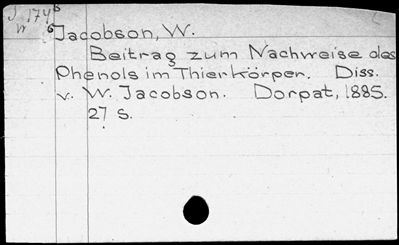 J 174 b
W 6
Jacobson, W.
Beitrag zum Nachweise des
Phenols im Thierkörper. Diss.
v. W. Jacobson. Dorpat, 1885.
27 S.